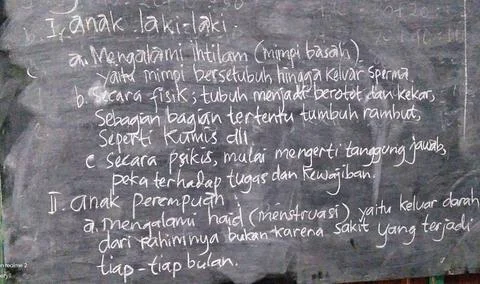 I. anak laki-laki.
a. Mengalami ihtilam (mimpi basah)
yaitu mimpi bersetubuh hingga keluar sperma.
b. Secara fisik; tubuh menjadi berotot dan kekar,
Sebagian bagian tertentu tumbuh rambut,
Seperti Kumis dll
c Secara psikis, mulai mengerti tanggung jawab,
peka terhadap tugas dan kewajiban.
II. anak perempuan ;
a. mengalami haid (menstruasi), yaitu keluar darah
dari rahiminya bukan karena sakit yang terjadi
tiap-tiap bulan.